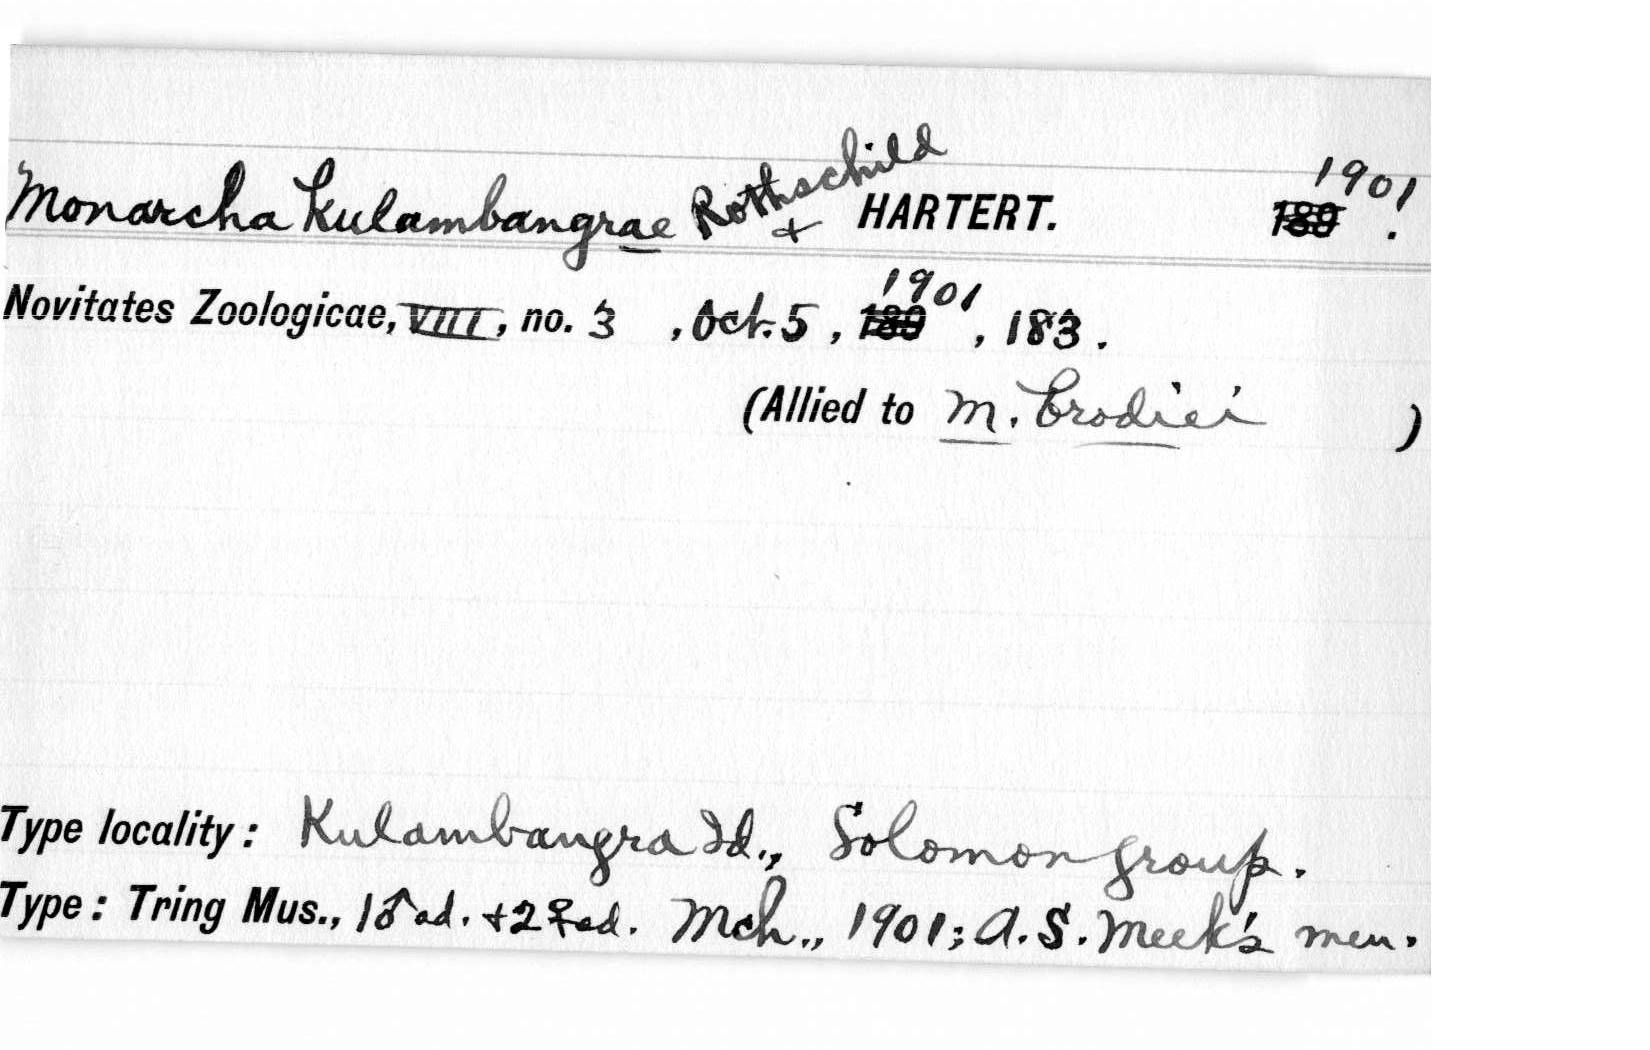 Monarcha Kulambangrae Rothschild + HARTERT. 1901.
Novitates Zoologicae, VIII, no. 3, Oct. 5, 1901, 183.
(Allied to M. brodiei)
Type locality: Kulambangra Id., Solomon group.
Type: Tring Mus., 1♂ad. + 2♀ad. Mch., 1901; A. S. Meek's men.